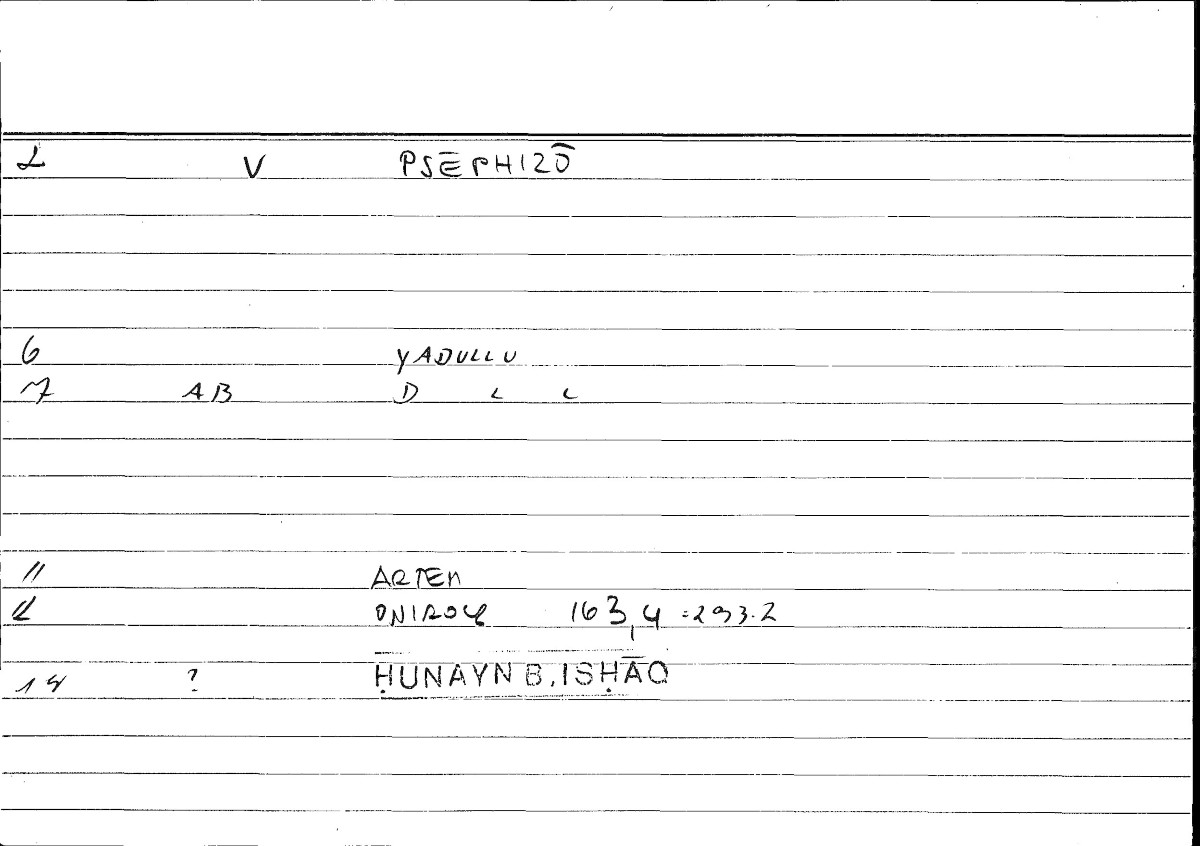 2 V PSĒPHIZŌ
6 YADULLU
7 AB D L L
11 ARTEM
12 ONIROCR 163,4 =293.2
14 ? ḤUNAYN B. ISḤĀQ